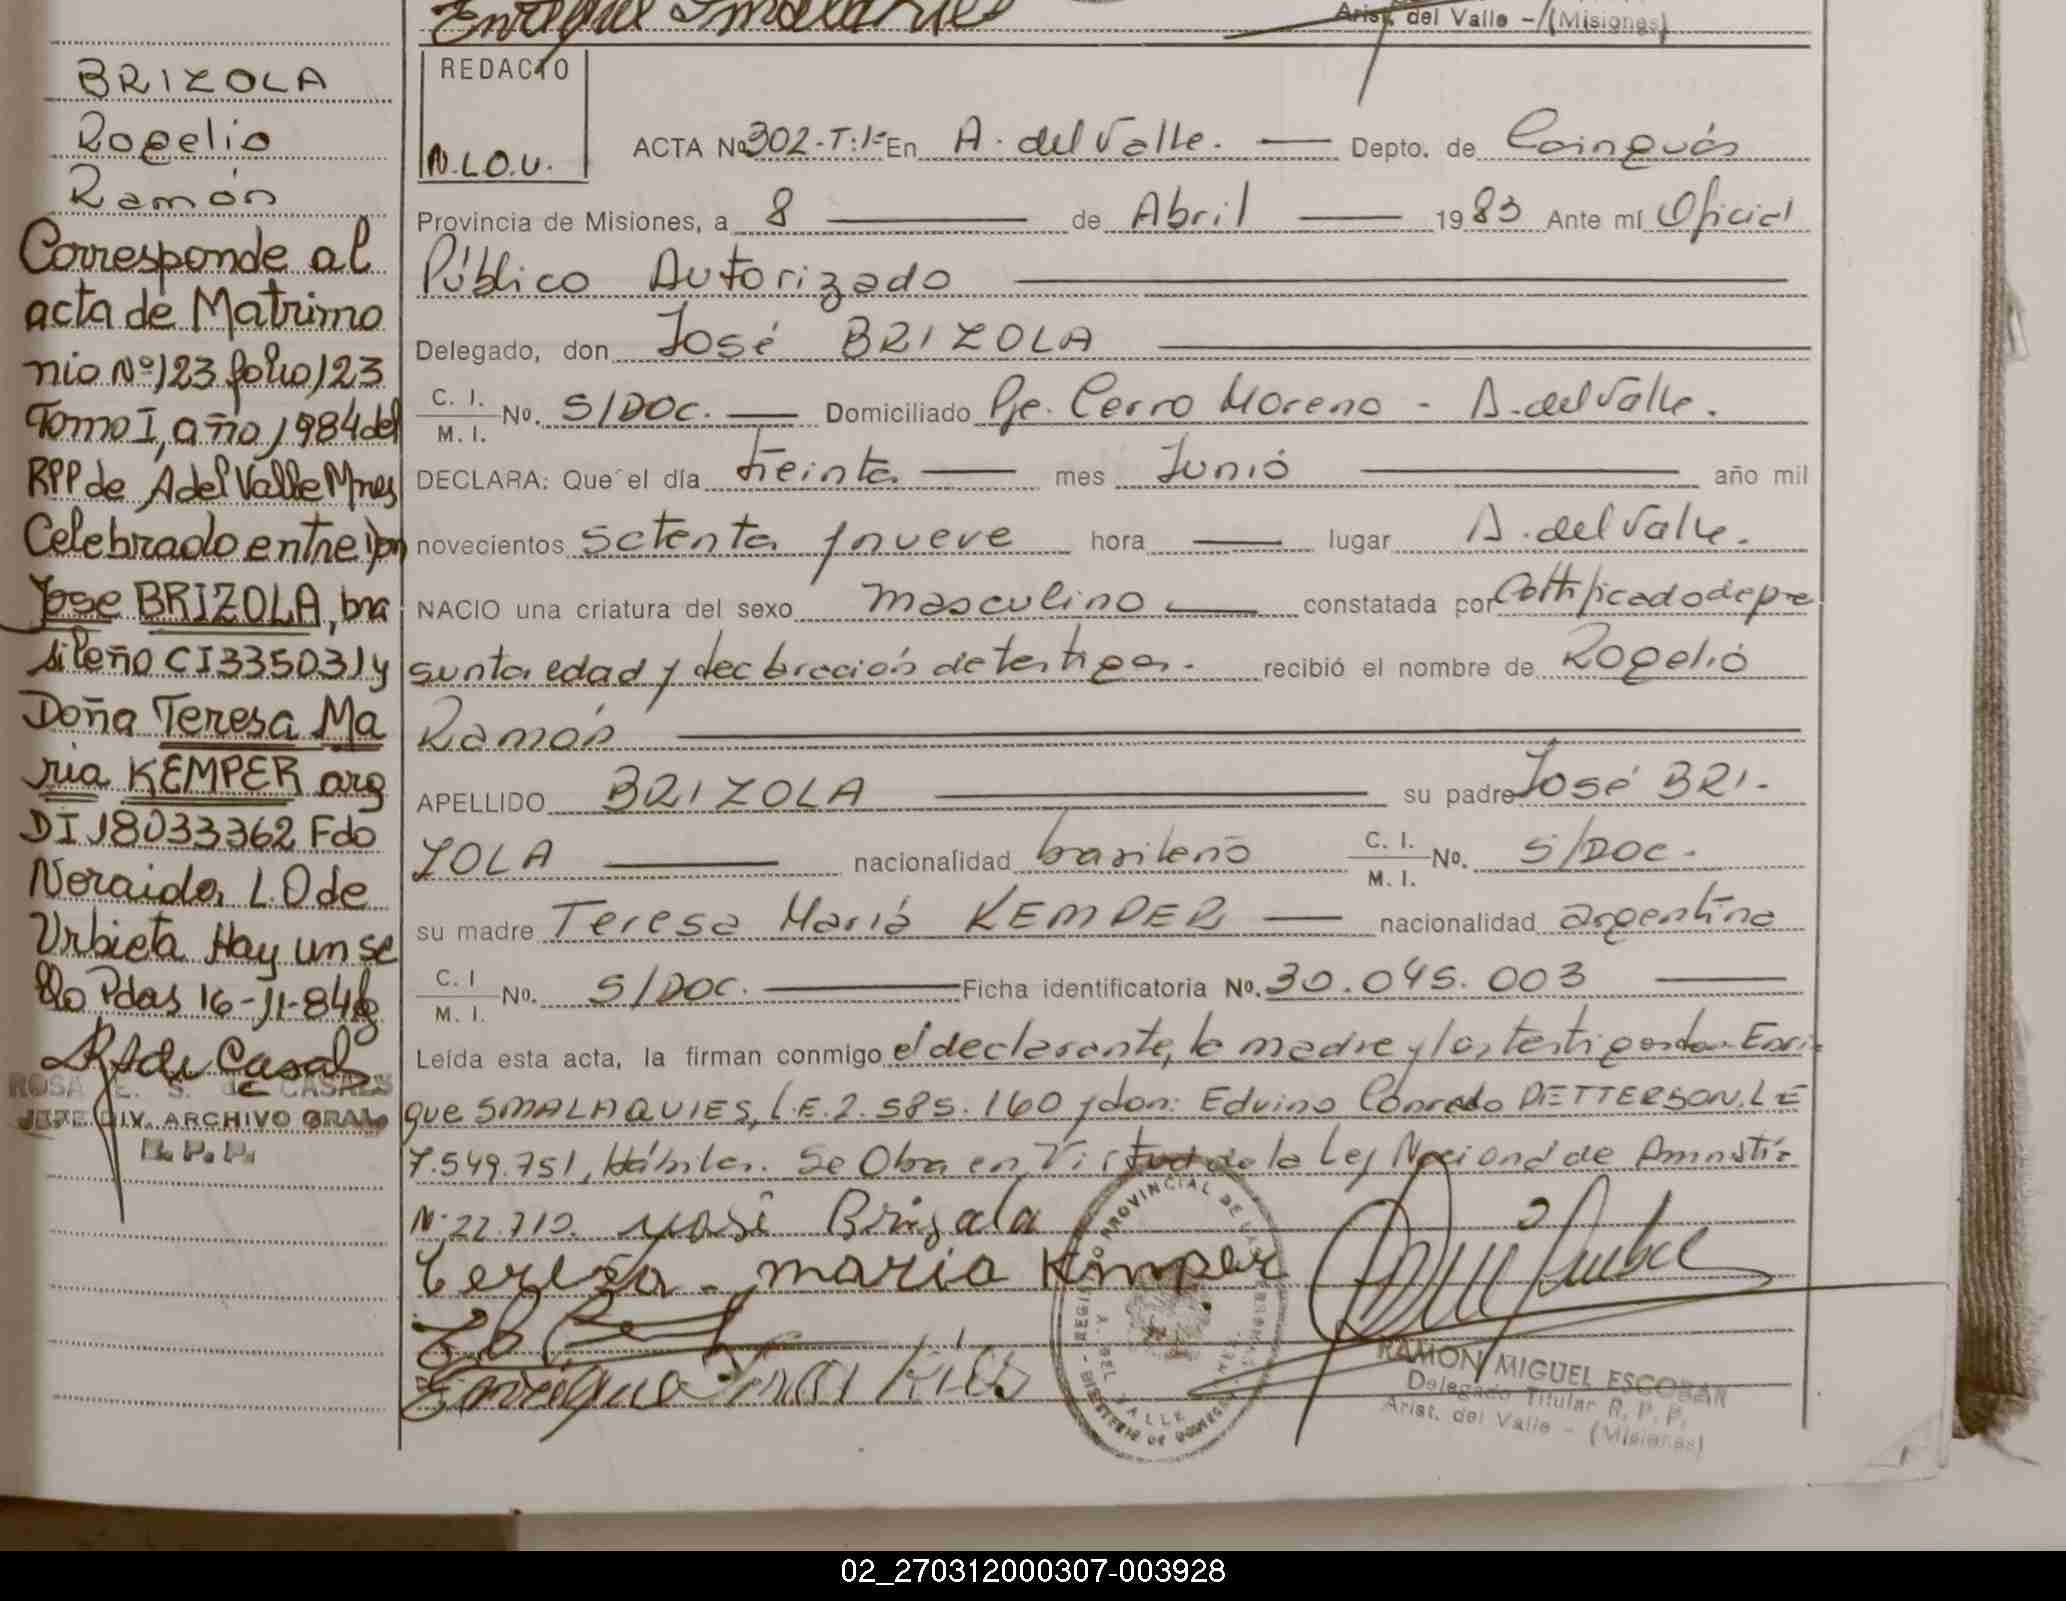 Arist. del Valle - (Misiones)
BRIZOLA
Rogelio
Ramón
Corresponde al
acta de Matrimo
nio Nº 123 folio 123
Tomo I, año 1984 del
RPP de A del Valle Mnes
Celebrado entre Don
Jose BRIZOLA, bra
sileño CI 335031 y
Doña Teresa Ma
ria KEMPER arg
DI 18033362 Fdo
Neraida L. O de
Urbieta Hay un se
llo Pdas 16-11-84
ROSA E. S. de CASALS
JEFE DIV. ARCHIVO GRAL
R. P. P.
REDACTO
N.L.O.U.
ACTA Nº 302-T:1º En A. del Valle. Depto. de Cainguás
Provincia de Misiones, a 8 de Abril 1983 Ante mí Oficial
Público Autorizado
Delegado, don José BRIZOLA
C. I. M. I. No. S/DOC. Domiciliado Pje. Cerro Moreno - A. del Valle.
DECLARA: Que el día treinta mes Junio año mil
novecientos setenta y nueve hora lugar A. del Valle.
NACIO una criatura del sexo masculino constatada por certificado de pre
sunta edad y declaración de testigos. recibió el nombre de Rogelio
Ramón
APELLIDO BRIZOLA su padre José BRI-
ZOLA nacionalidad brasileño C. I. M. I. No. S/DOC.
su madre Teresa María KEMPER nacionalidad argentina
C. I M. I. No. S/DOC. Ficha identificatoria No. 30.045.003
Leída esta acta, la firman conmigo el declarante, la madre y los testigos don Enri
que SMALAQUIES, L.E. 2.585.160 y don: Edvino Conrado PETTERSON. L E
7.549.751, Hábiles. Se Obra en Virtud de la Ley Nacional de Amnistía
Nº 22.710. José Brizala
tereza - maria Kemper
RAMON MIGUEL ESCOBAR
Delegado Titular R. P. P.
Arist. del Valle - (Misiones)
02_270312000307-003928